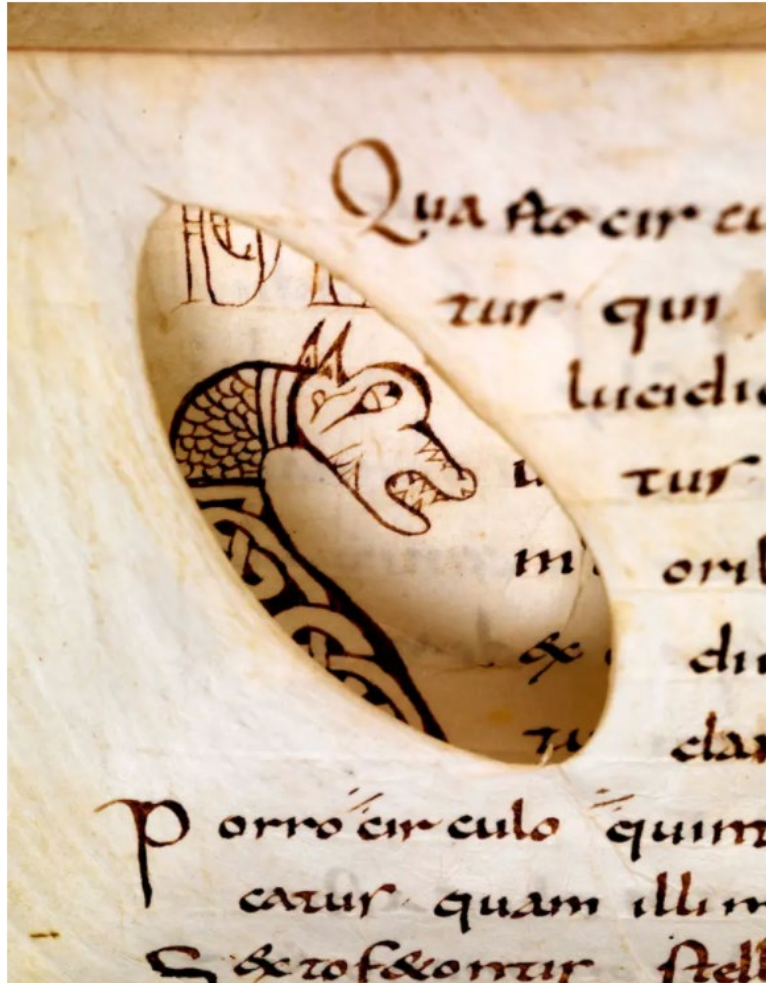 Qua sto cir cu
tur qui
lucidi
tur
m oril
& di
tu cla
Porro cir culo quint
catur quam illi m
S&to f&ontir stell